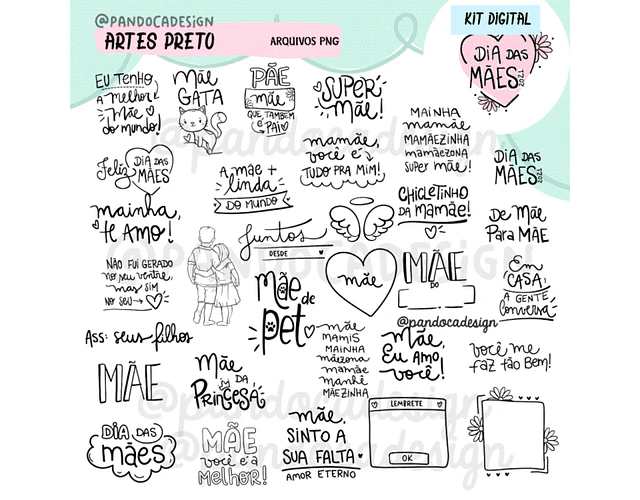 @PANDOCADESIGN
ARTES PRETO
ARQUIVOS PNG
KIT DIGITAL
DIA DAS
MÃES
EU TENHO
A melhor
Mãe
do mundo!
Mãe
GATA
PÃE
mãe
QUE TAMBÉM
É PAI
SUPER
Mãe!
MAINHA
mamãe
MAMÃEZINHA
mamãezona
SUPER mãe!
Feliz
DIA DAS
MÃES
A mãe +
linda
DO MUNDO
mamãe,
você é
TUDO PRA MIM!
DIA DAS
MÃES
mainha,
te Amo!
CHICLETINHO
DA mamãe!
De Mãe
Para MÃE
NÃO FUI GERADO
no seu ventre,
mas sim
NO seu
Juntos
DESDE
mãe
MÃE
DO
Em
CASA,
A GENTE
Conversa
Mãe de
pet
@pandocadesign
Ass: seus filhos
mãe
MAMIS
MAINHA
mãezona
mamãe
manhê
MÃEZINHA
Mãe,
Eu Amo
você!
você me
faz tão Bem!
MÃE
Mãe
DA
PRINCESA
DIA DAS
mães
MÃE
você é a
melhor!
mãe,
SINTO A
SUA FALTA
AMOR ETERNO
LEMBRETE
OK
@pandocadesign